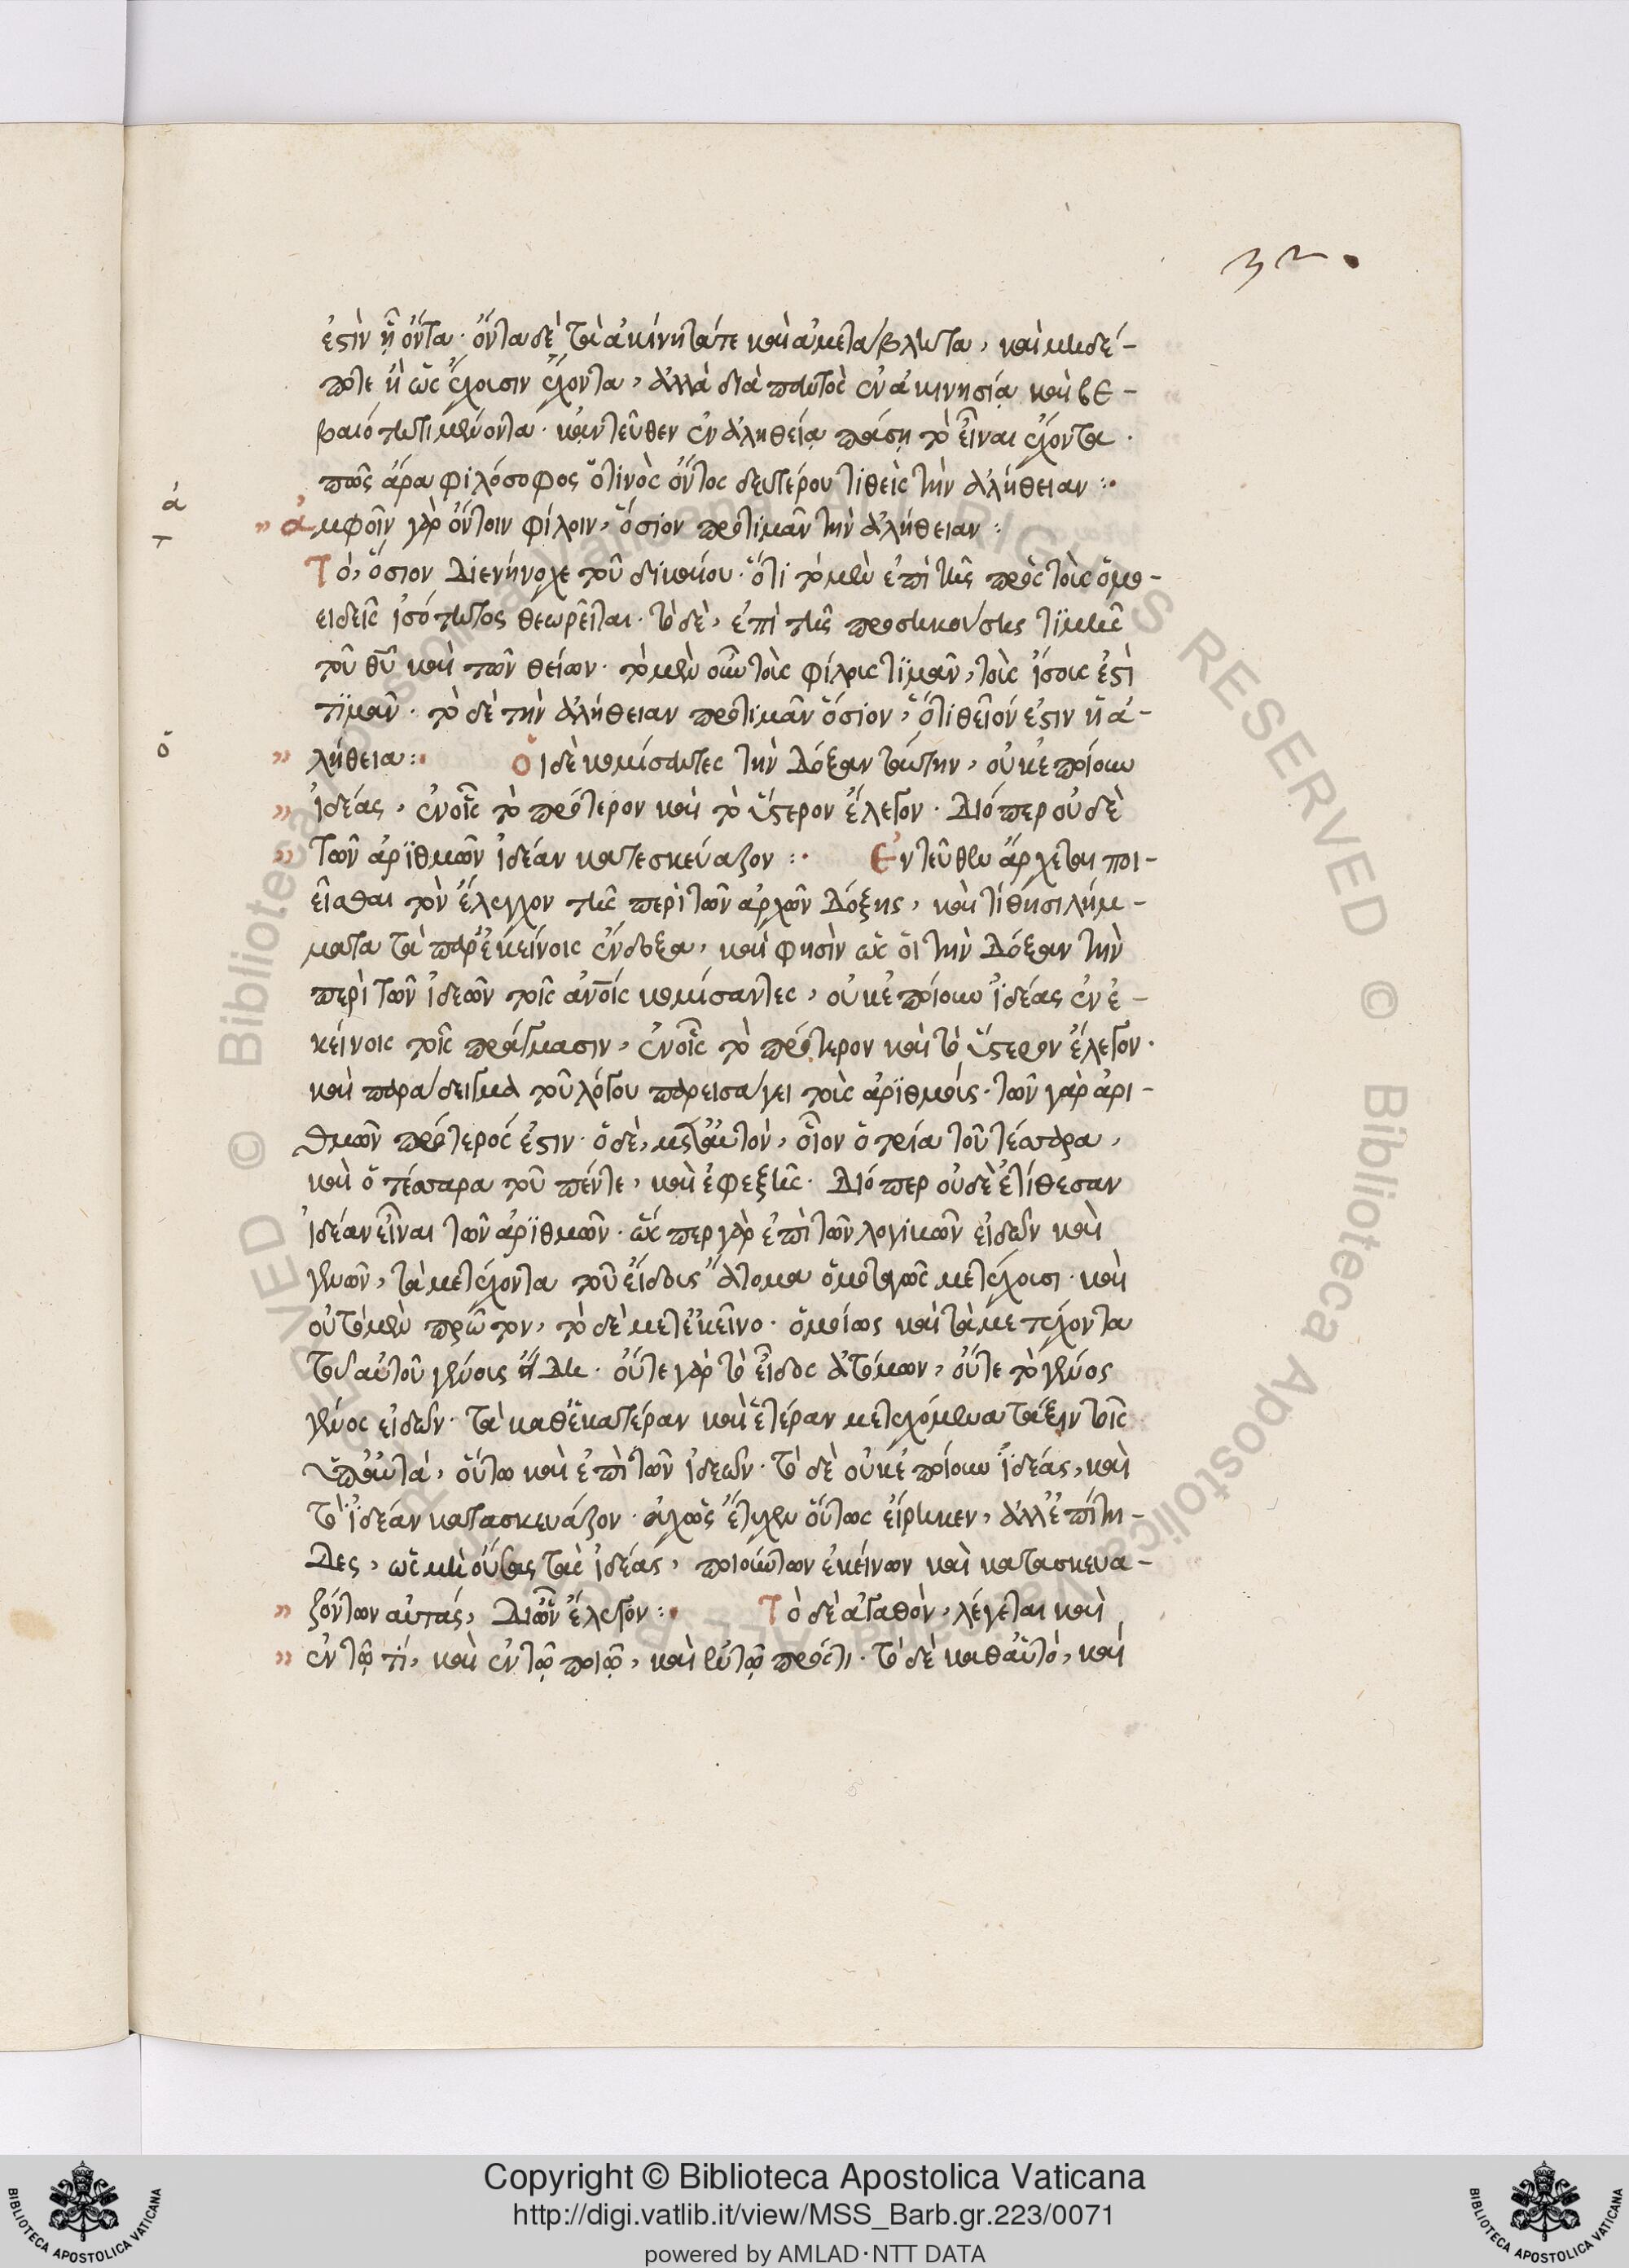 32.
ἐστὶν ᾗ ὄντα· ὄντα δὲ τὰ ἀκίνητά τε καὶ ἀμετάβλητα, καὶ μηδέ-
ποτε ἢ ὡς ἔχουσιν ἔχοντα, ἀλλὰ διὰ παντὸς ἐν ἀκινησίᾳ καὶ βε-
βαιότητι μένοντα· κἀντεῦθεν ἐν ἀληθείᾳ πάσῃ τὸ εἶναι ἔχοντα·
πῶς ἄρα φιλόσοφος ὅτινὸς ὄντος δευτέρου τιθεὶς τὴν ἀλήθειαν:·
ἀ
” ἀμφοῖν γὰρ ὄντοιν φίλοιν, ὅσιον προτιμᾶν τὴν ἀλήθειαν:
τ
Τό, ὅσιον διενήνοχε τοῦ δικαίου· ὅτι τὸ μὲν ἐπὶ τῆς πρὸς τοὺς ὁμο-
ειδεῖς ἰσότητος θεωρεῖται· τὸ δὲ, ἐπὶ τῆς προσηκούσης τιμῆς
τοῦ θῦ καὶ τῶν θείων· τὸ μὲν οὖν τοὺς φίλους τιμᾶν, τοὺς ἴσους ἐστὶ
τιμᾶν· τὸ δὲ τὴν ἀλήθειαν προτιμᾶν ὅσιον, ὅτι θεῖόν ἐστιν ἡ ἀ-
ὅ
” λήθεια:· Οἱ δὲ κομίσαντες τὴν δόξαν ταύτην, οὐκ ἐποίουν
” ἰδέας, ἐν οἷς τὸ πρότερον καὶ τὸ ὕστερον ἔλεγον· Διόπερ οὐδὲ
” τῶν ἀριθμῶν ἰδέαν κατεσκεύαζον:· Ἐντεῦθεν ἄρχεται ποι-
εῖσθαι τὸν ἔλεγχον τῆς περὶ τῶν ἀρχῶν δόξης, καὶ τίθησι λήμ-
ματα τὰ παρ' ἐκείνοις ἔνδοξα, καὶ φησὶν ὡς οἱ τὴν δόξαν τὴν
περὶ τῶν ἰδεῶν τοῖς ἀνοις κομίσαντες, οὐκ ἐποίουν ἰδέας ἐν ἐ-
κείνοις τοῖς πράγμασιν, ἐν οἷς τὸ πρότερον καὶ τὸ ὕστερον ἔλεγον·
καὶ παράδειγμα τοῦ λόγου παρεισάγει τοὺς ἀριθμούς· τῶν γὰρ ἀρι-
θμῶν πρότερός ἐστιν· ὁ δὲ, μετ' αὐτόν, οἷον ὁ τρία τοῦ τέσσαρα,
καὶ ὁ τέσσαρα τοῦ πέντε, καὶ ἐφεξῆς· Διόπερ οὐδὲ ἐτίθεσαν
ἰδέαν εἶναι τῶν ἀριθμῶν· ὥσπερ γὰρ ἐπὶ τῶν λογικῶν εἰδῶν καὶ
γενῶν, τὰ μετέχοντα τοῦ εἴδους ἄτομα ὁμοταγῶς μετέχουσι· καὶ
οὐ τὸ μὲν πρῶτον, τὸ δὲ μετ' ἐκεῖνο· ὁμοίως καὶ τὰ μετέχοντα
τοῦ αὐτοῦ γένους εἴδη· οὔτε γὰρ τὸ εἶδος ἀτόμων, οὔτε τὸ γένος
γένος εἰδῶν· τὰ καθ' ἑκατέραν καὶ ἑτέραν μετεχόμενα τάξιν τοῖς
ὑπ' αὐτά, οὕτω καὶ ἐπὶ τῶν ἰδεῶν· τὸ δὲ οὐκ ἐποίουν ἰδέας, καὶ
τὸ ἰδέαν κατασκευάζον· οὐχ ὡς ἔτυχεν οὕτως εἴρηκεν, ἀλλ' ἐπίτη-
δες, ὡς μὴ οὔσας τὰς ἰδέας, ποιούντων ἐκείνων καὶ κατασκευα-
” ζόντων αὐτάς, δι' ὧν ἔλεγον:· Τὸ δὲ ἀγαθόν, λέγεται καὶ
” ἐν τῷ τί, καὶ ἐν τῷ ποιῷ, καὶ ἐν τῷ πρός τι· τὸ δὲ καθ' αὑτό, καὶ
Copyright © Biblioteca Apostolica Vaticana
http://digi.vatlib.it/view/MSS_Barb.gr.223/0071
powered by AMLAD·NTT DATA
BIBLIOTECA APOSTOLICA VATICANA
BIBLIOTECA APOSTOLICA VATICANA